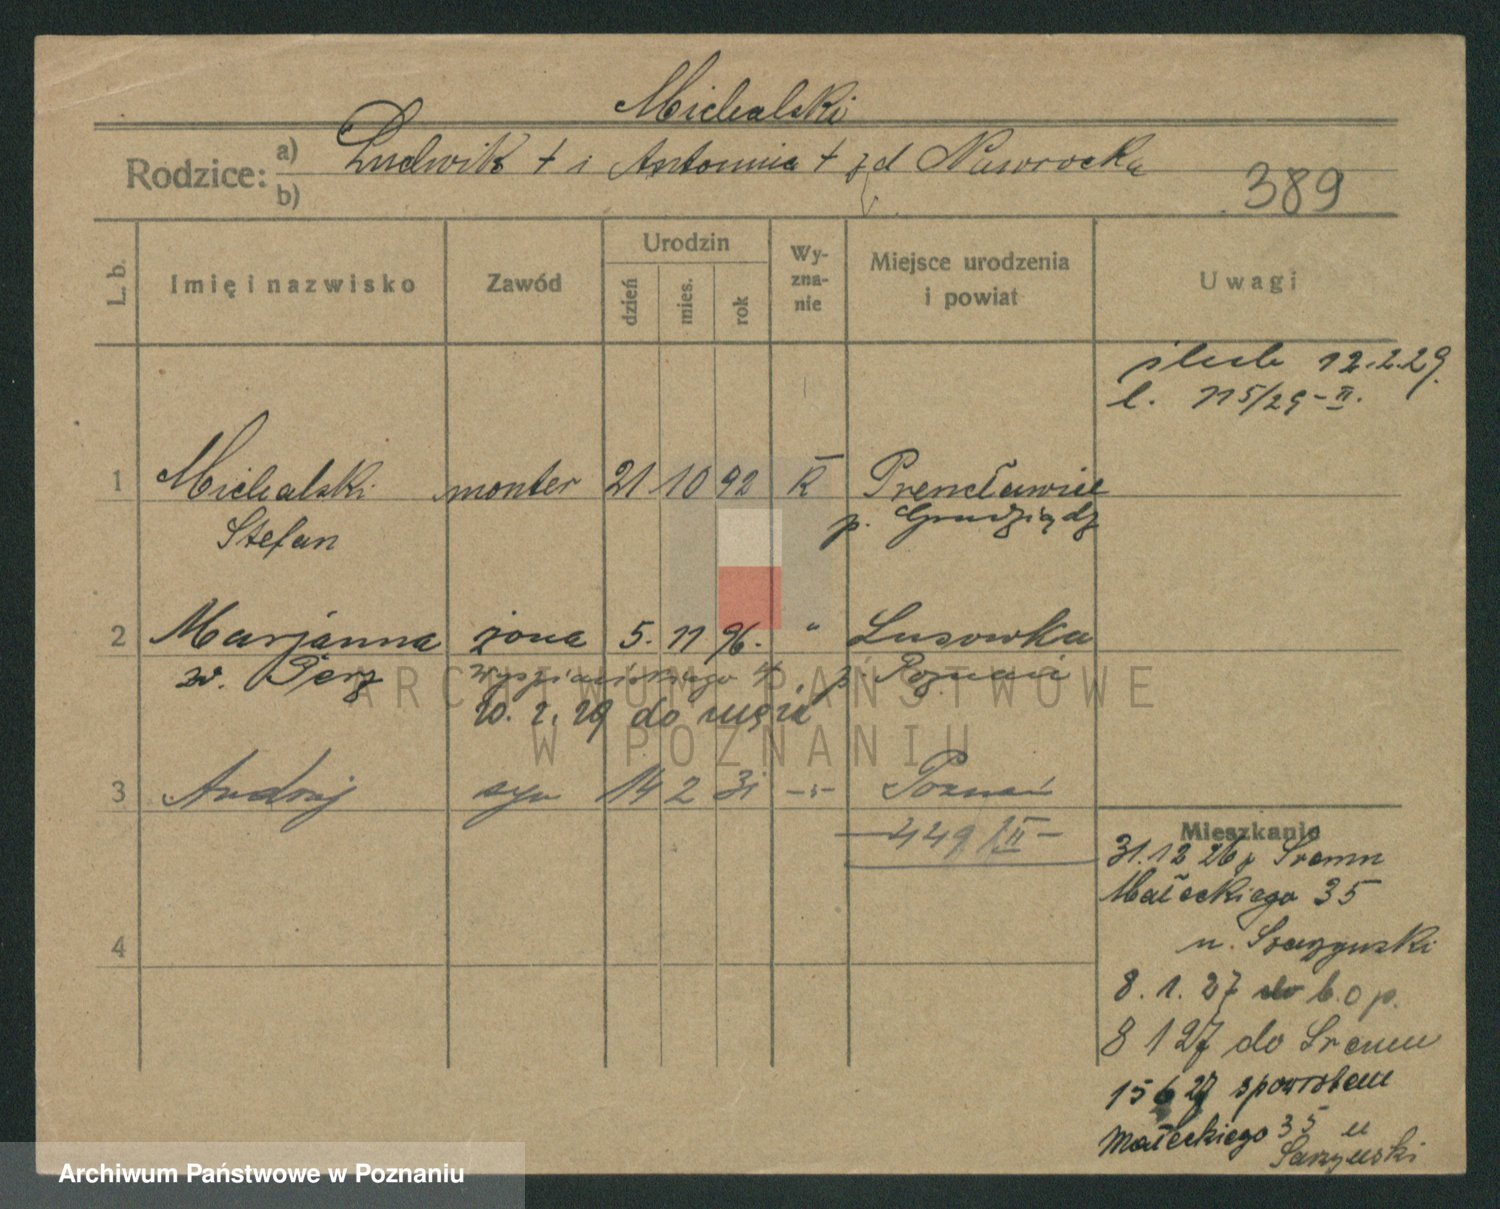 Michalski
Rodzice: a) Ludwik + i Antonina + zd Nawrocka
b)
389
L. b.
Imię i nazwisko
Zawód
Urodzin
dzień
mies.
rok
Wy-
zna-
nie
Miejsce urodzenia
i powiat
Uwagi
ślub 12.2.29.
l. 115/29-II.
1 Michalski monter 21 10 92 K
Stefan
p. Grudziądz
2 Marjanna żona 5. 11 96. " Lusowka
w. Perz Wyspiańskiego 4 p. Poznań
20. 2. 29 do męża
3 Andrzej syn 14 2 31 -"- Poznań
449/II-
4
Mieszkanie
31.12 26 z Śremu
Małeckiego 35
u.
8. 1. 27 do b.o p.
8 1 27 do Śremu
15 6 27 spowrotem
Małeckiego 35 u
ARCHIWUM PAŃSTWOWE
W POZNANIU
Archiwum Państwowe w Poznaniu